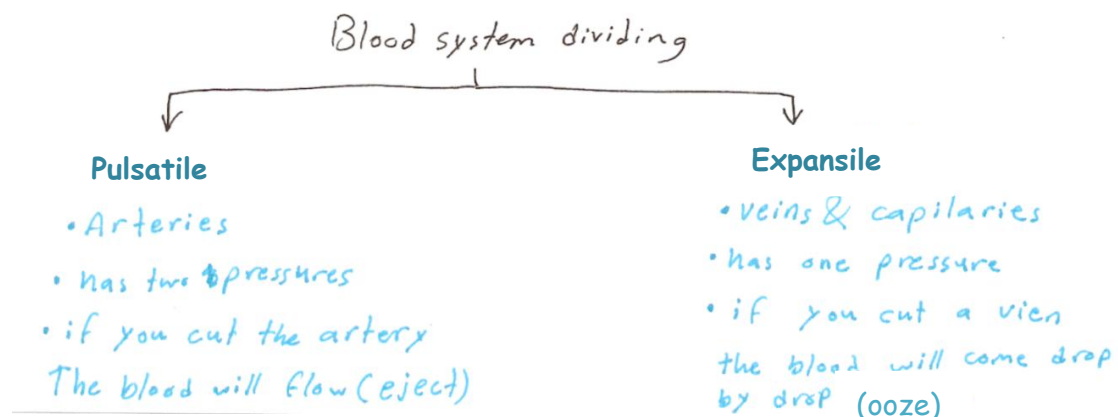 Blood system dividing
Pulsatile
• Arteries
• has two pressures
• if you cut the artery
The blood will flow (eject)
Expansile
• veins & capilaries
• has one pressure
• if you cut a vien
the blood will come drop
by drop (ooze)